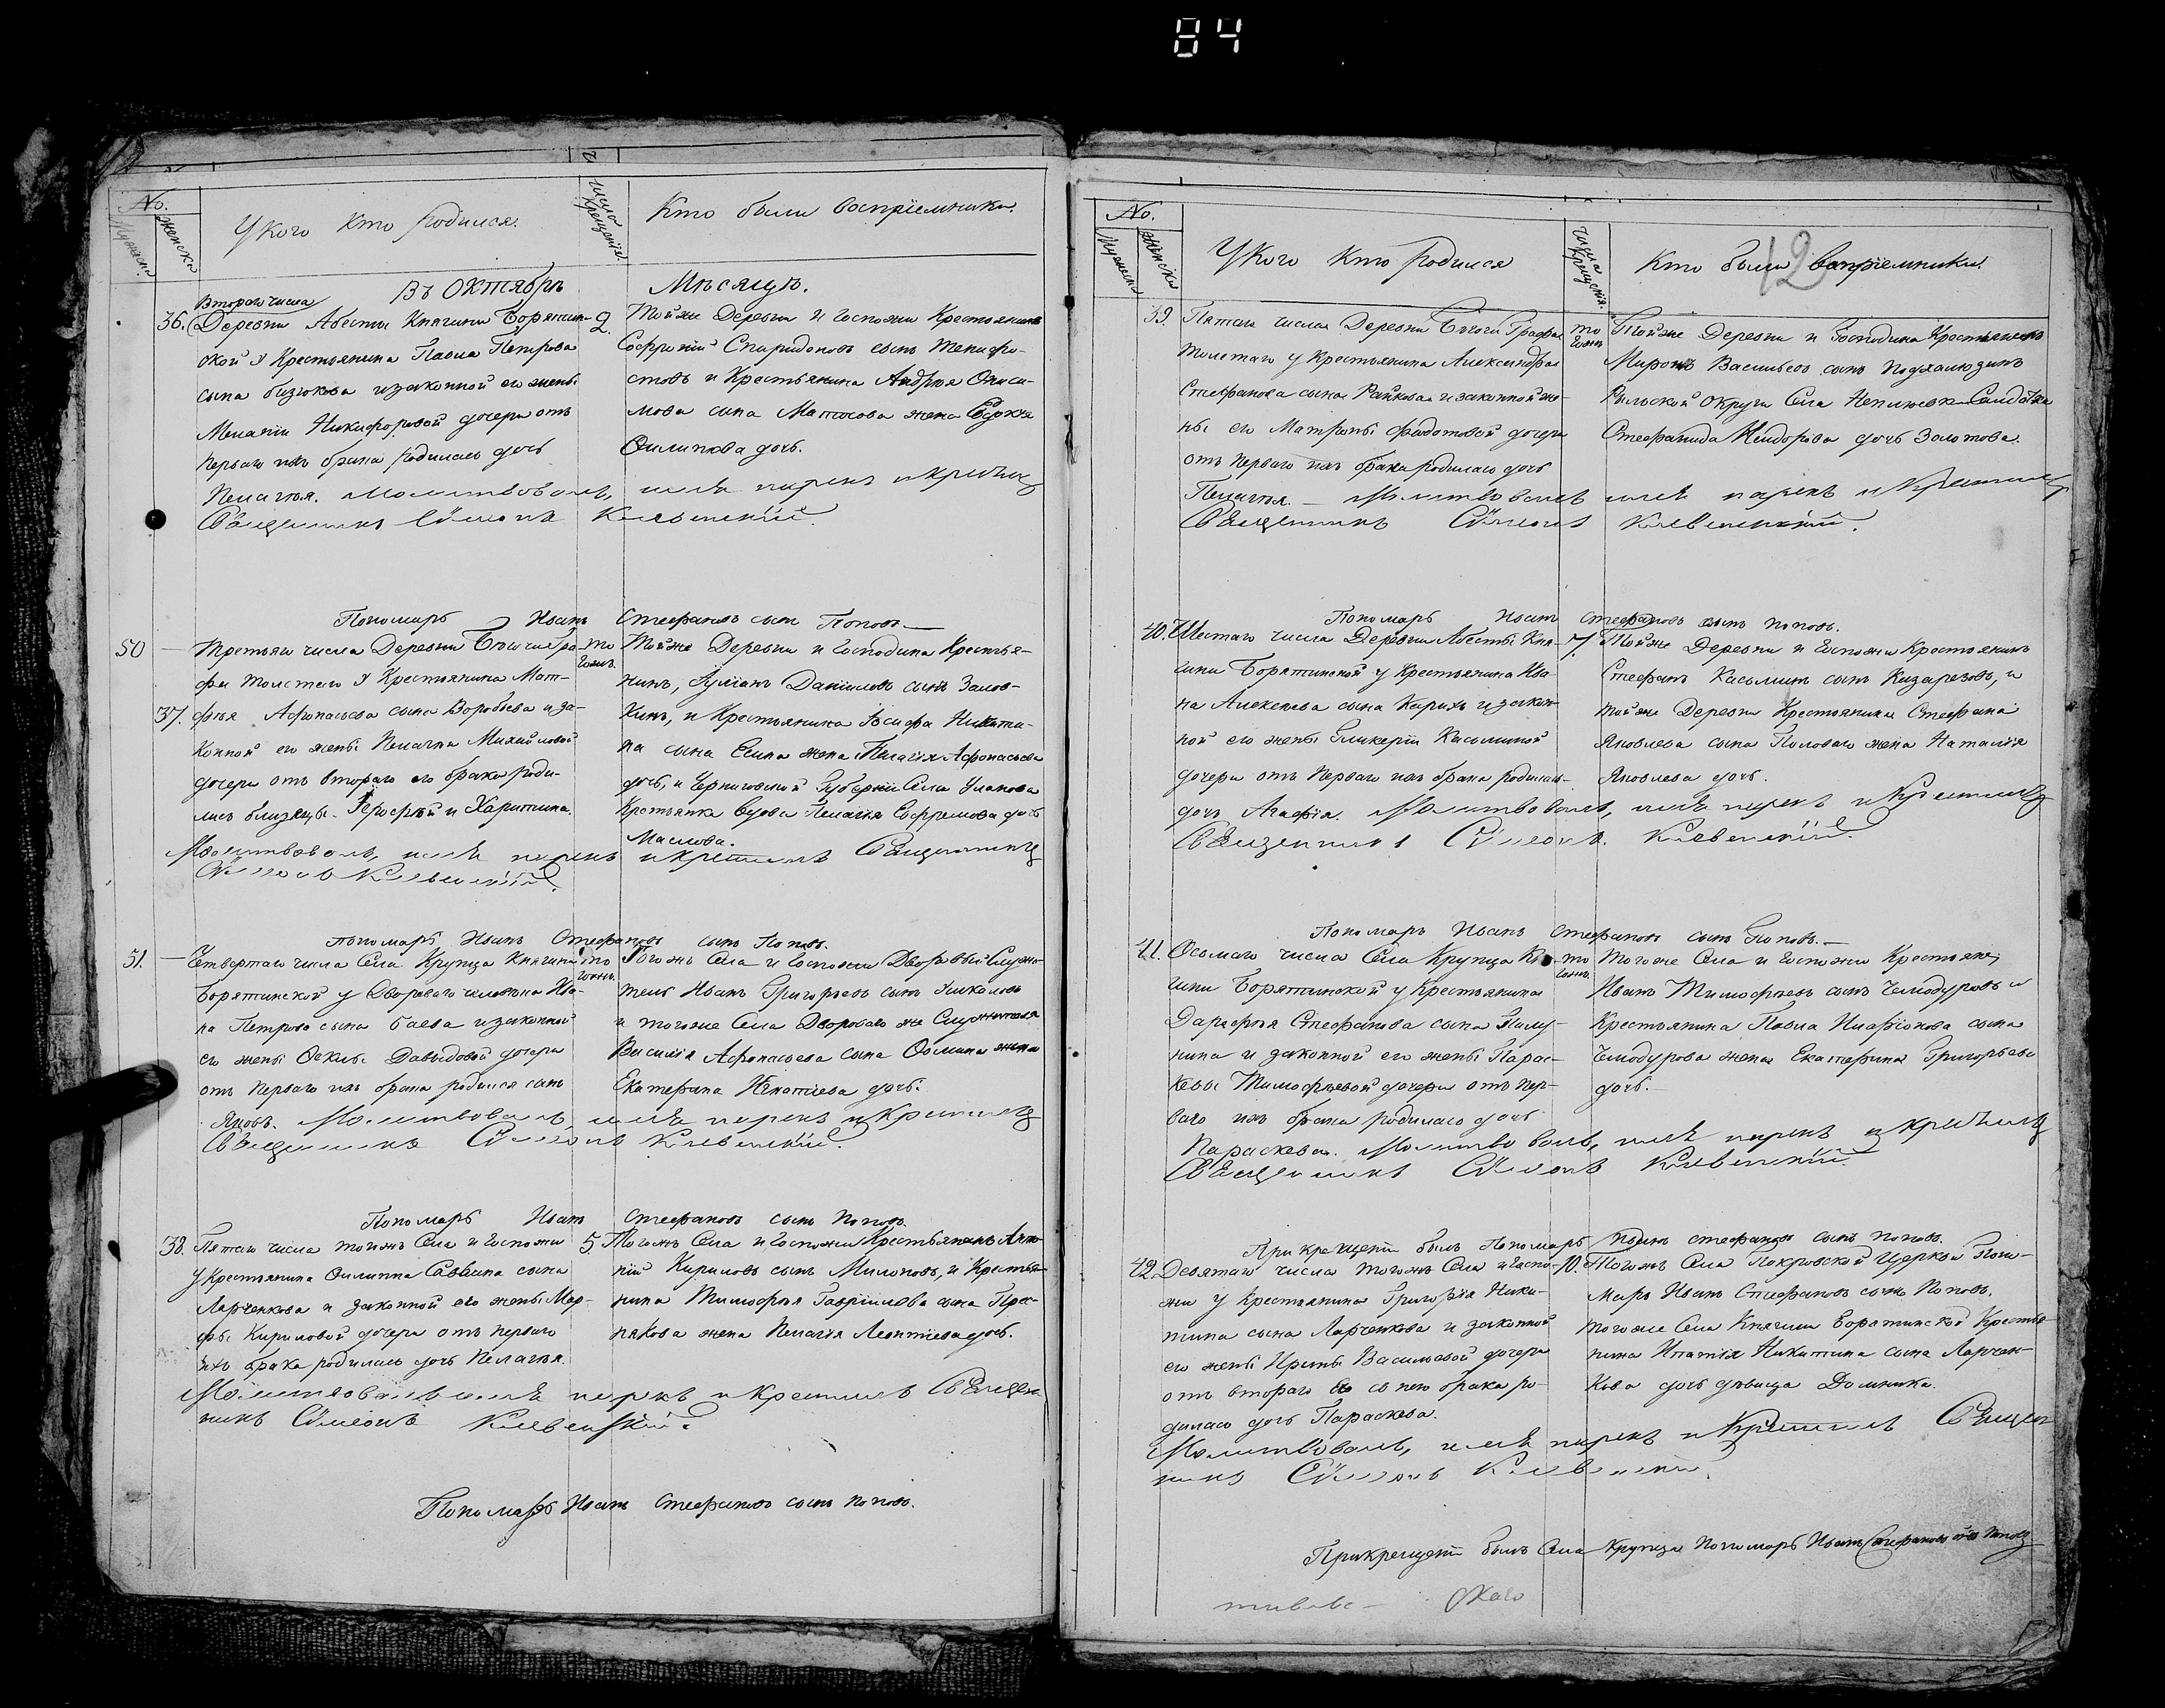 84
No.
Мужеска
Женска
У Кого Кто Родился.
Числа Крещенія.
Кто были воспріемники.
Въ Октябрѣ Мѣсяцѣ.
Втораго числа
36. Деревни Абесты Княгини Борятин-
ской у Крестьянина Павла Петрова
сына базюкова и законной его жены
Меланіи Никифоровой дочери отъ
перваго ихъ брака родилась дочь
Пелагѣя. Молитвовалъ, имя нарекъ и крестилъ
Священникъ Сѵмеонъ Клевенскій.
2. Той же Деревни и Госпожи Крестьянинъ
Софроній Спиридоновъ сынъ
и Крестьянина Андрѣя Ониси-
мова сына жена
Филипова дочь.
Пономарь Иванъ Стефановъ сынъ Поповъ.
50 Третьяго числа Деревни Гра-
фа Толстаго у Крестьянина Мат-
37. фѣя Афонасьева сына Воробьева и за-
конной его жены Пелагіи Михайловой
дочери отъ втораго его брака роди-
лись близнецы Ерофѣй и Харитина.
Молитвовалъ, имя нарекъ и крестилъ Священникъ
Сѵмеонъ Клевенскій.
того жъ
Той же Деревни и Господина Крестья-
нинъ, Іуліанъ Даніиловъ сынъ
и Крестьянина Іосифа Никити-
на сына Есина жена Пелагія Афонасьева
дочь, и Черниговской Губерніи Села Уланова
Крестьянка вдова Пелагія Ефремова дочь
Маслова.
Пономарь Иванъ Стефановъ сынъ Поповъ.
51. Четвертаго числа Села Крупца Княгини
Борятинской у Двороваго человѣка Ива-
на Петрова сына Баева и законной
его жены Феклы Давыдовой дочери
отъ перваго ихъ брака родился сынъ
Яковъ. Молитвовалъ, имя нарекъ и крестилъ
Священникъ Сѵмеонъ Клевенскій.
того жъ
Того жъ Села и Госпожи Дворовый Служи-
тель Иванъ Григорьевъ сынъ
и того же Села Двороваго же Служителя
Василія Афонасьева сына Фомина жена
Екатерина Игнатіева дочь.
Пономарь Иванъ Стефановъ сынъ Поповъ.
38. Пятаго числа того жъ Села и Госпожи
у Крестьянина Филиппа Саввина сына
Ларченкова и законной его жены Мар-
фы Кириловой дочери отъ перваго
ихъ брака родилась дочь Пелагѣя.
Молитвовалъ имя нарекъ и крестилъ Священ-
никъ Сѵмеонъ Клевенскій.
5. Того жъ Села и Госпожи Крестьянинъ
Кириловъ сынъ Милоновъ, и Крестья-
нина Тимофѣя Гавріилова сына Прес-
някова жена Пелагія Леонтіева дочь.
Пономарь Иванъ Стефановъ сынъ Поповъ.
No.
Мужеска
Женска
У Кого Кто Родился
Числа Крещенія.
Кто были воспріемники.
42
39. Пятаго числа Деревни Графа
Толстаго у Крестьянина Александра
Стефанова сына Райкова и законной же-
ны его Матроны Федотовой дочери
отъ перваго ихъ брака родилась дочь
Пелагѣя. Молитвовалъ имя нарекъ и крестилъ
Священникъ Сѵмеонъ Клевенскій.
того жъ
Той же Деревни и Господина Крестьянинъ
Миронъ Васильевъ сынъ Подхалюзинъ
Рыльской Округи Села Солдатка
Стефанида дочь Золотова.
Пономарь Иванъ Стефановъ сынъ Поповъ.
40. Шестаго числа Деревни Абесты Кня-
гини Борятинской у Крестьянина Ива-
на Алексѣева сына и закон-
ной его жены Гликеріи Касьминой
дочери отъ перваго ихъ брака родилась
дочь Агафія. Молитвовалъ, имя нарекъ и крестилъ
Священникъ Сѵмеонъ Клевенскій.
7. Той же Деревни и Госпожи Крестьянинъ
Стефанъ Касьминъ сынъ Казарезовъ, и
той же Деревни Крестьянина Стефана
Яковлева сына Половаго жена Наталія
Яковлева дочь.
Пономарь Иванъ Стефановъ сынъ Поповъ.
41. Осьмаго числа Села Крупца Кня-
гини Борятинской у Крестьянина
Дарофѣя Стефанова сына
и законной его жены Парас-
кевы Тимофѣевой дочери отъ пер-
ваго ихъ брака родилась дочь
Параскева. Молитвовалъ, имя нарекъ и крестилъ
Священникъ Сѵмеонъ Клевенскій.
того жъ
Того же Села и Госпожи Крестьяне,
Иванъ Тимофѣевъ сынъ Чемодуровъ и
Крестьянина Павла Иларіонова сына
Чемодурова жена Екатерина Григорьева
дочь.
При крещеніи былъ Пономарь Иванъ Стефановъ сынъ Поповъ.
42. Девятаго числа того жъ Села и Госпо-
жи у Крестьянина Григорія Ники-
тина сына Ларченкова и законной
его жены Ирины Васильевой дочери
отъ втораго его съ нею брака ро-
дилась дочь Параскева.
Молитвовалъ, имя нарекъ и крестилъ Священ-
никъ Сѵмеонъ Клевенскій.
10. Того жъ Села Покровской Церкви Поно-
марь Иванъ Стефановъ сынъ Поповъ,
того же Села Княгини Борятинской Крестья-
нина Ипатія Никитина сына Ларчен-
кова дочь дѣвица Домника.
При крещеніи былъ Села Крупца Пономарь Иванъ Стефановъ сынъ Поповъ